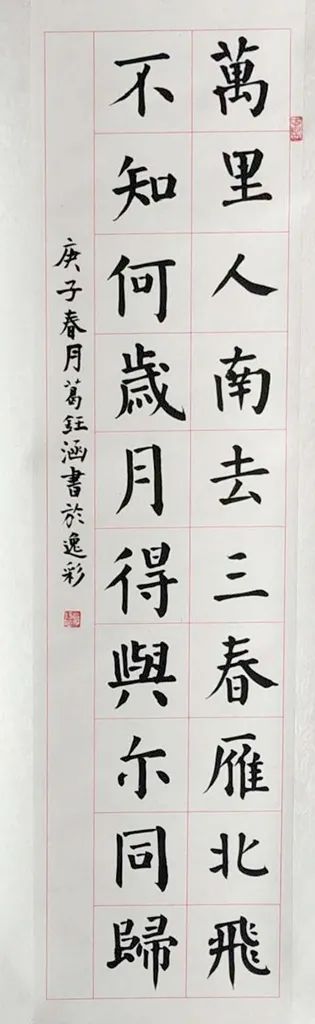 萬里人南去三春雁北飛
不知何歲月得與尒同歸
庚子春月葛鈺涵書於逸彩